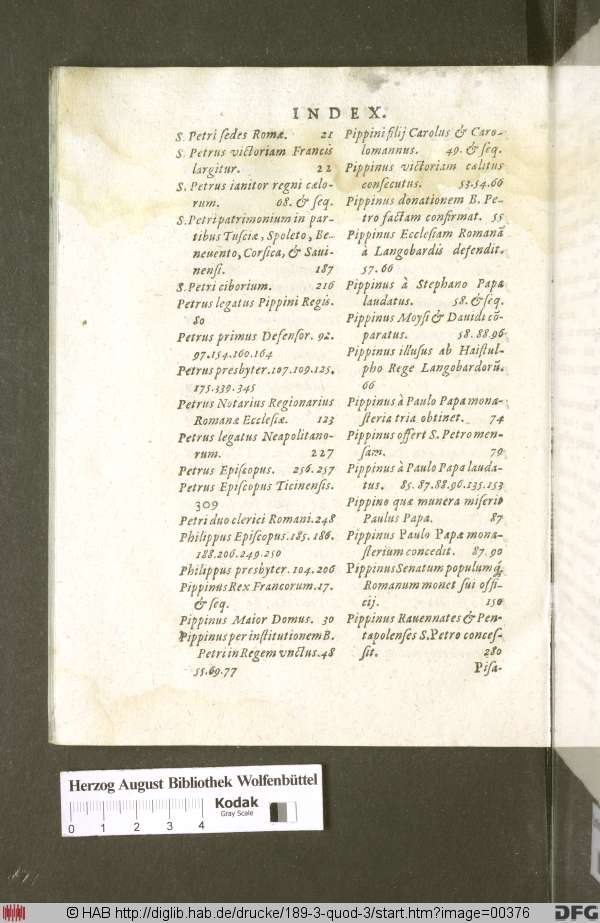 INDEX.
S. Petri sedes Romæ. 21
S. Petrus victoriam Francis
largitur. 22
S. Petrus ianitor regni cælo-
rum. 68. & seq.
S. Petri patrimonium in par-
tibus Tusciæ, Spoleto, Be-
neuento, Corsica, & Saui-
nensi. 187
S. Petri ciborium. 216
Petrus legatus Pippini Regis.
80
Petrus primus Defensor. 92.
97.154.160.164
Petrus presbyter. 107.109.125.
175.339.345
Petrus Notarius Regionarius
Romanæ Ecclesiæ. 123
Petrus legatus Neapolitano-
rum. 227
Petrus Episcopus. 256.257
Petrus Episcopus Ticinensis.
309
Petri duo clerici Romani. 248
Philippus Episcopus. 185. 186.
188.206.249.250
Philippus presbyter. 104.206
Pippinus Rex Francorum. 17.
& seq.
Pippinus Maior Domus. 30
Pippinus per institutionem B.
Petri in Regem vnctus. 48
55.69.77
Pippini filij Carolus & Caro-
lomannus. 49. & seq.
Pippinus victoriam cælitus
consecutus. 53.54.66
Pippinus donationem B. Pe-
tro factam confirmat. 55
Pippinus Ecclesiam Romanã
à Langobardis defendit.
57.66
Pippinus à Stephano Papa
laudatus. 58. & seq.
Pippinus Moysi & Dauidi cõ-
paratus. 58.88.96
Pippinus illusus ab Haistul-
pho Rege Langobardorũ.
66
Pippinus à Paulo Papa mona-
steria tria obtinet. 74
Pippinus offert S. Petro men-
sam. 79
Pippinus à Paulo Papa lauda-
tus. 85.87.88.96.135.153
Pippino quæ munera miserit
Paulus Papa. 87
Pippinus Paulo Papæ mona-
sterium concedit. 87.90
Pippinus Senatum populumq́;
Romanum monet sui offi-
cij. 150
Pippinus Rauennates & Pen-
tapolenses S. Petro conces-
sit. 280
Pisa-
Herzog August Bibliothek Wolfenbüttel
Kodak
Gray Scale
0 1 2 3 4
© HAB http://diglib.hab.de/drucke/189-3-quod-3/start.htm?image=00376
DFG